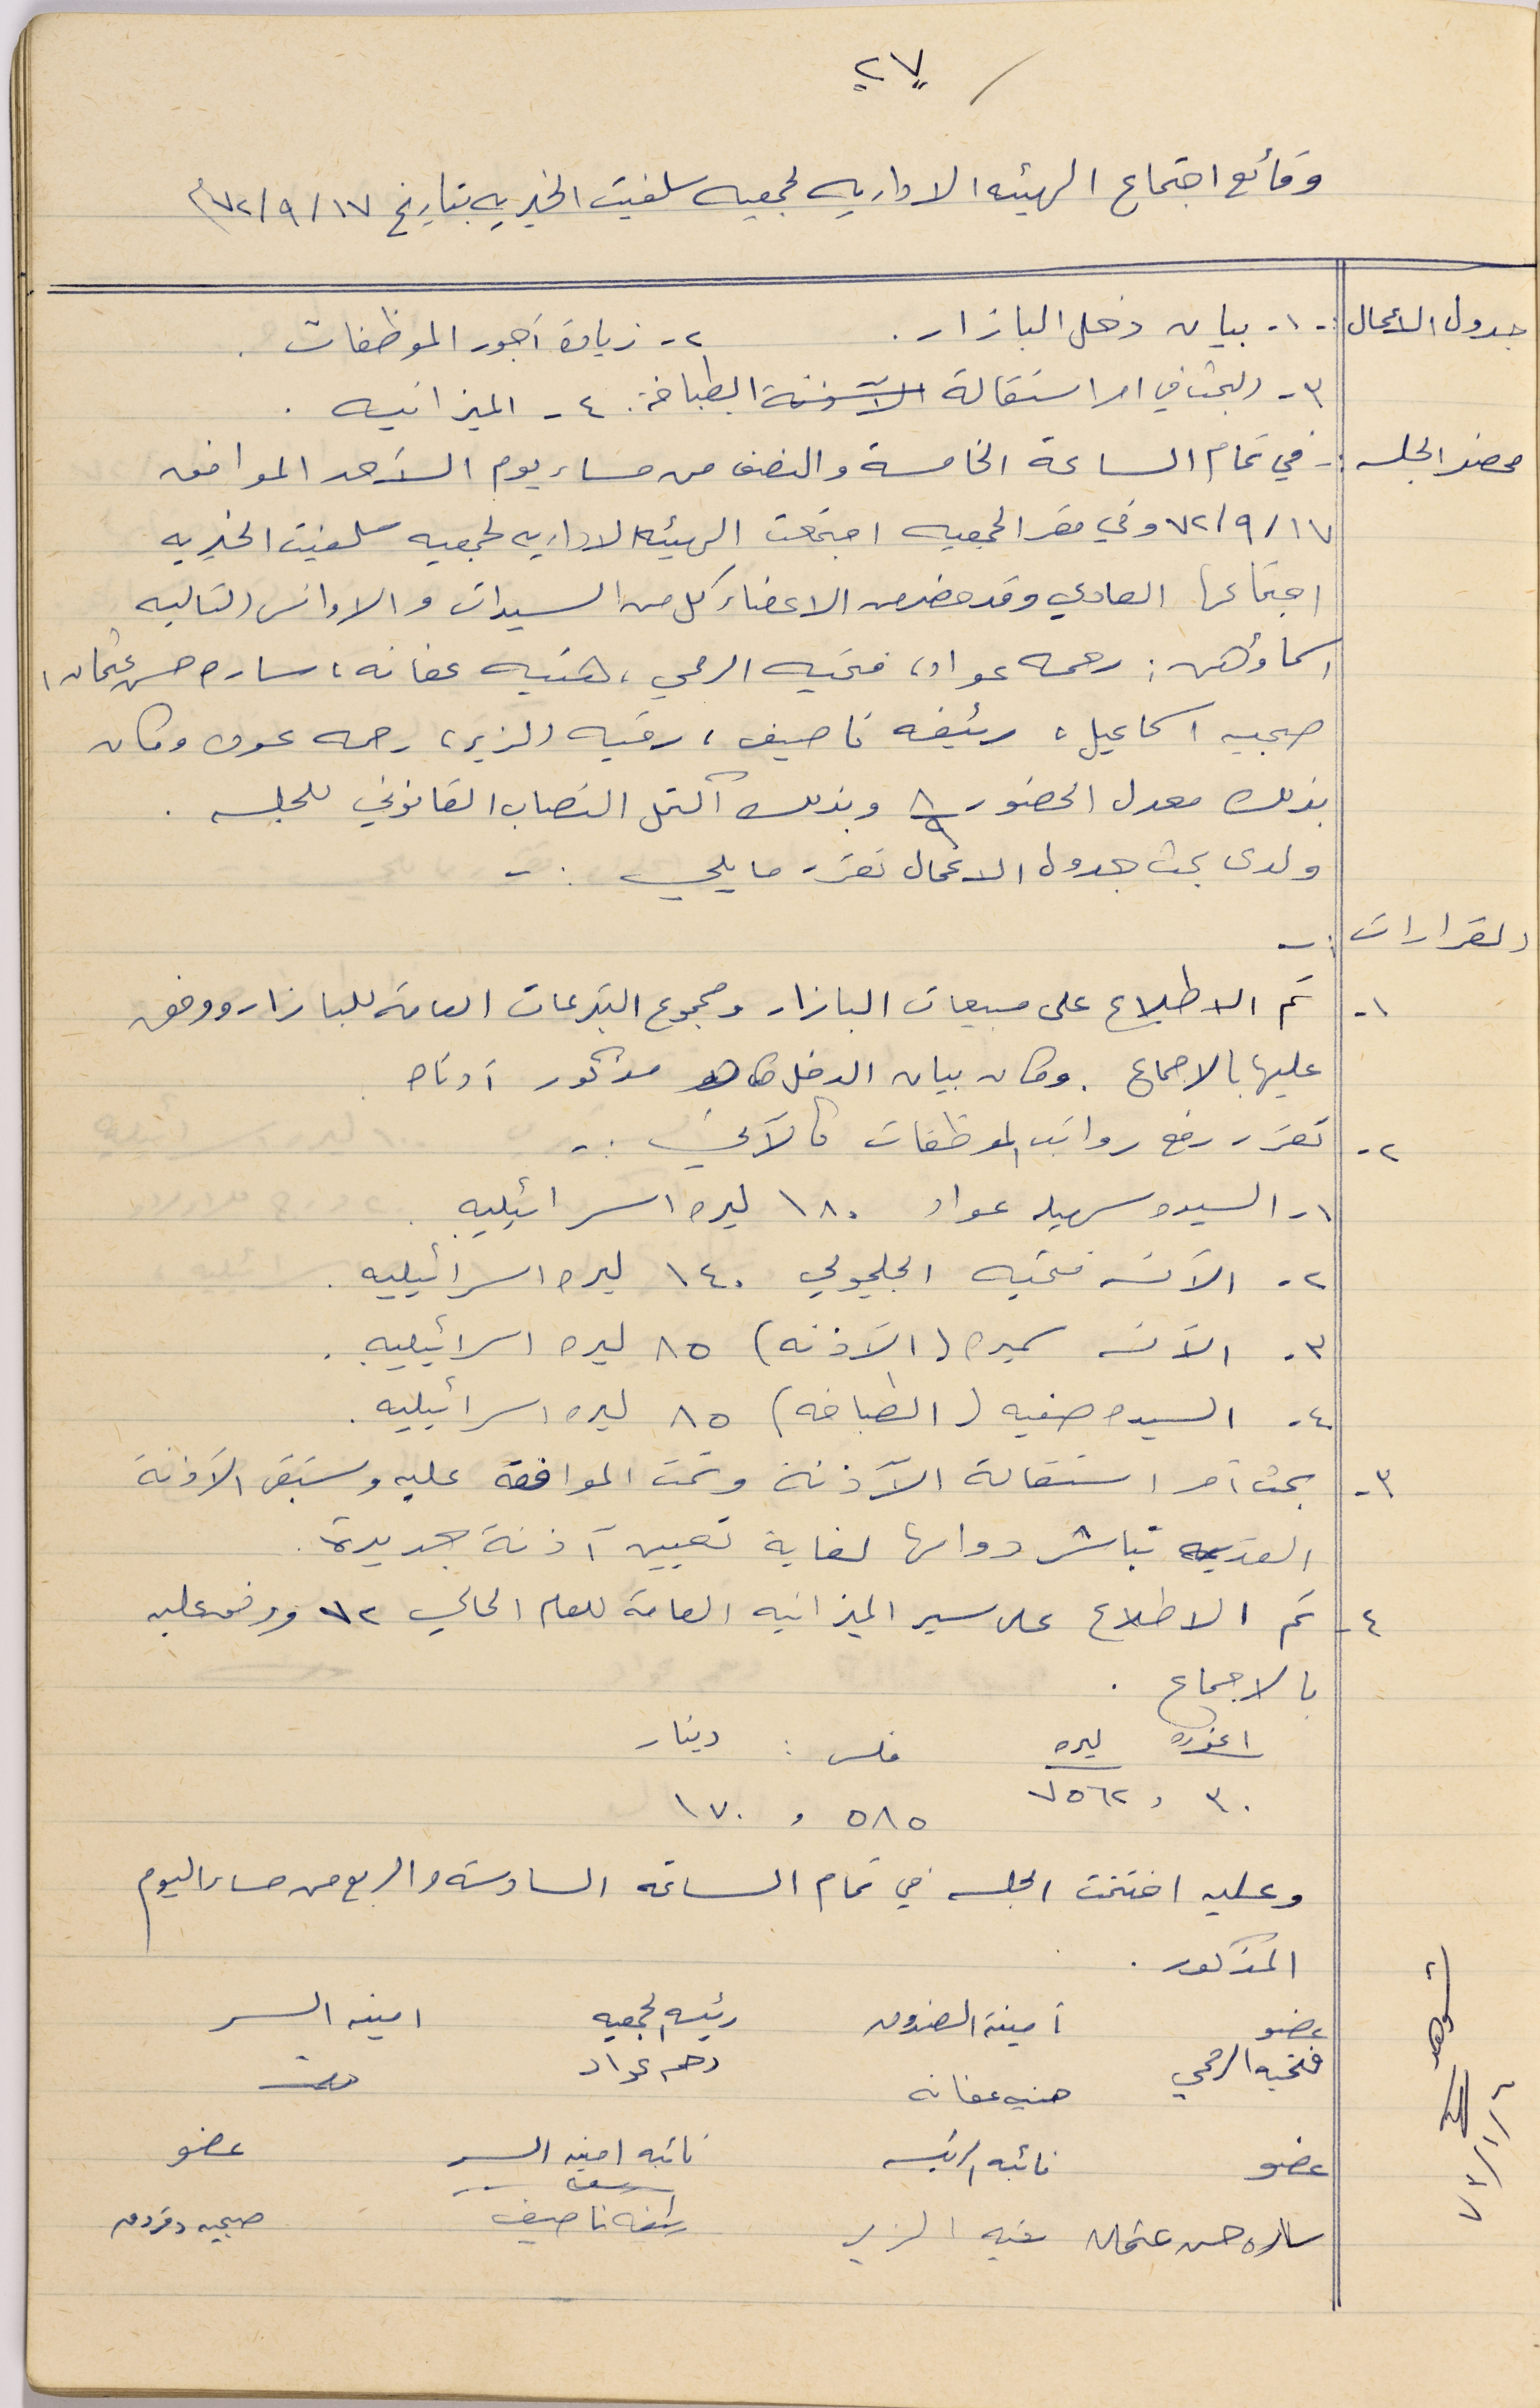 ٢٧
وقائع اجتماع الهيئه الاداريه لجمعيه سلفيت الخيريه بتاريخ ١٧/٩/٧٢م
جدول الأعمال :- ١- بيان دخل البازار. ٢- زيادة أجور الموظفات.
٣- البحث في امر استقالة الطباخة. ٤- الميزانيه.
محضر الجلسه :- في تمام الساعة الخامسة والنصف من مساء يوم الأحد الموافق
١٧/٩/٧٢ وفي مقر الجمعيه اجتمعت الهيئه الاداريه لجمعيه سلفيت الخيريه
اجتماعها العادي وقد حضر من الاعضاء كل من السيدات والاوانس التاليه
اسماؤهن: رحمه عواد، فتحيه الرمحي، هنيه عفانه، ساره حسن عثمان،
صبحيه اسماعيل، رئيفه ناصيف، رقيه الزير، رحمه عون وكان
بذلك معدل الحضور ٨/٩ وبذلك اكتمل النصاب القانوني للجلسه.
ولدى بحث جدول الاعمال تقرر ما يلي :-
القرارات :-
١- تم الاطلاع على مبيعات البازار ومجموع التبرعات العامة للبازار ووفق
عليها بالاجماع. وكان بيان الدخل كما هو مذكور أدناه
٢- تقرر رفع رواتب الموظفات كالآتي :-
١- السيده سهيله عواد ١٨٠ ليره اسرائيليه.
٢- الآنسه فتحيه الجلجولي ١٤٠ ليره اسرائيليه.
٣- الآنسه سميره (الآذنه) ٨٥ ليره اسرائيليه.
٤- السيده صفيه (الطباخه) ٨٥ ليره اسرائيليه.
٣- بحث أمر استقالة الآذنة وتمت الموافقة عليه وستبقى الآذنة
القديمه تباشر دوامها لغاية تعيين آذنة جديدة.
٤- تم الاطلاع على سير الميزانيه العامة للعام الحالي ٧٢ ووفق عليه
بالاجماع.
اغوره ليره فلس : دينار
٣٠ , ٧٥٦٢ ٥٨٥ , ١٧٠
وعليه اختتمت الجلسه في تمام الساعه السادسة والربع من مساء اليوم
المذكور.
عضو أمينة الصندوق رئيسه الجمعيه امينه السر
فتحيه الرمحي هنيه عفانه رحمه عواد
عضو نائبه الرئيسه نائبه امينه السر عضو
ساره حسن عثمان رقيه الزير رئيفه ناصيف صبحيه